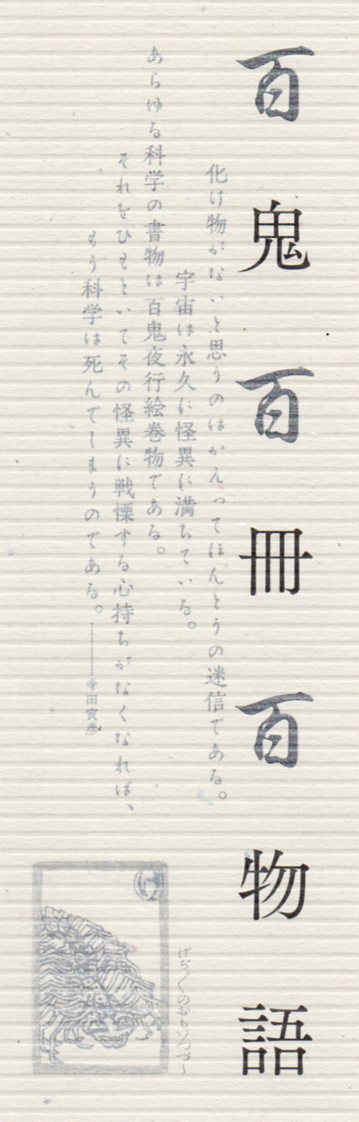 百鬼百冊百物語
化け物がないと思うのはかえってほんとうの迷信である。
宇宙は永久に怪異に満ちている。
あらゆる科学の書物は百鬼夜行絵巻物である。
それをひもといてその怪異に戦慄する心持ちがなくなれば、
もう科学は死んでしまうのである。――寺田寅彦